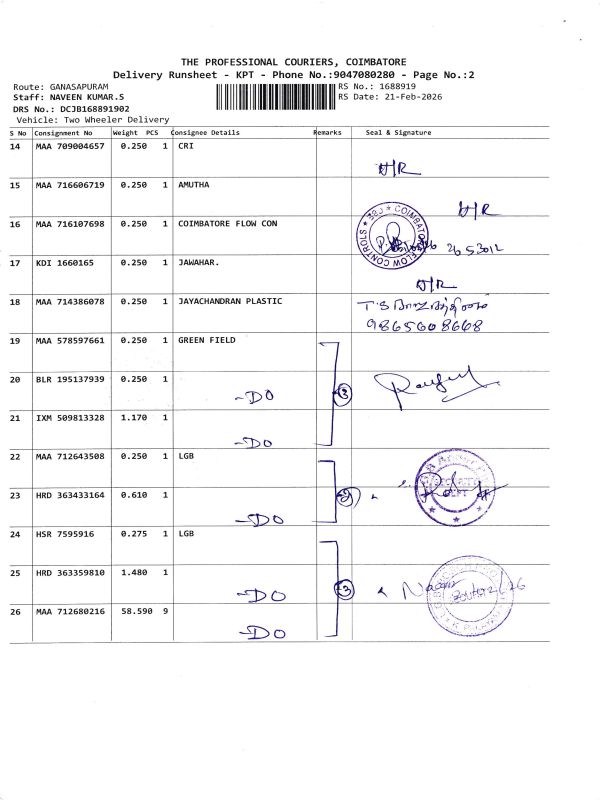 THE PROFESSIONAL COURIERS, COIMBATORE
Delivery Runsheet - KPT - Phone No.:9047080280 - Page No.:2
Route: GANASAPURAM RS No.: 1688919
Staff: NAVEEN KUMAR.S RS Date: 21-Feb-2026
DRS No.: DCJB168891902
Vehicle: Two Wheeler Delivery
S No Consignment No Weight PCS Consignee Details Remarks Seal & Signature
14 MAA 709004657 0.250 1 CRI
H/R
15 MAA 716606719 0.250 1 AMUTHA
H/R
16 MAA 716107698 0.250 1 COIMBATORE FLOW CON
COIMBATORE FLOW CONTROLS
17 KDI 1660165 0.250 1 JAWAHAR.
H/R
18 MAA 714386078 0.250 1 JAYACHANDRAN PLASTIC
9865608668
19 MAA 578597661 0.250 1 GREEN FIELD
20 BLR 195137939 0.250 1 -DO 3
21 IXM 509813328 1.170 1 -DO
22 MAA 712643508 0.250 1 LGB
23 HRD 363433164 0.610 1 -DO 2
24 HSR 7595916 0.275 1 LGB
25 HRD 363359810 1.480 1 -DO 3
26 MAA 712680216 58.590 9 -DO